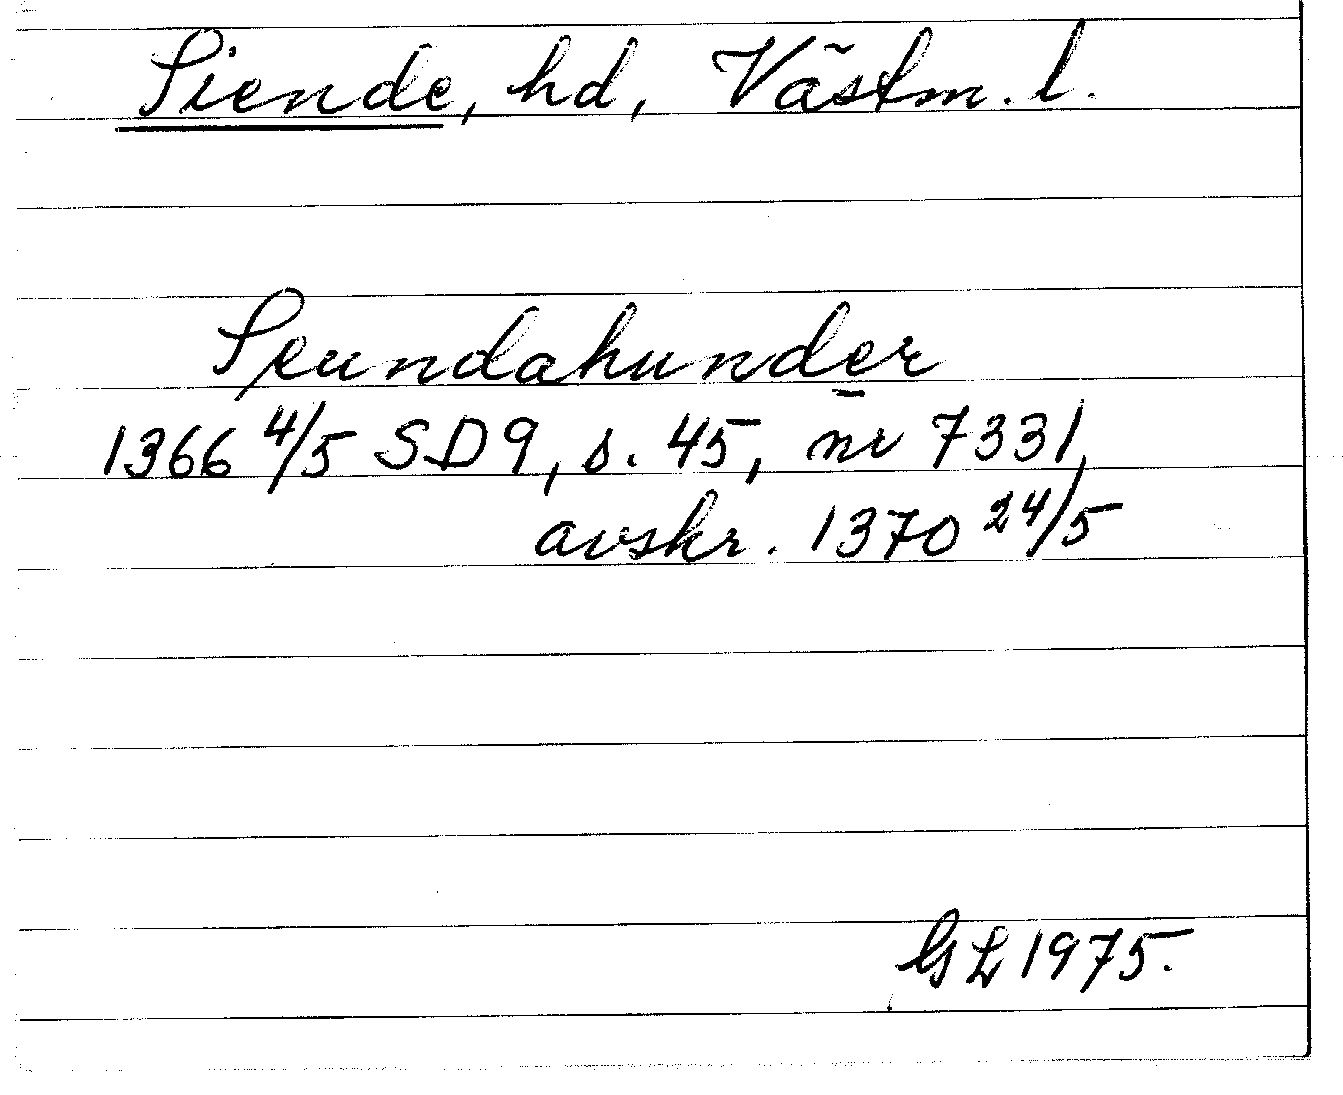 Siende, hd, Västm. l.
Seundahunder
1366 4/5 SD 9, s. 45, nr 7331,
avskr. 1370 24/5
GL 1975.